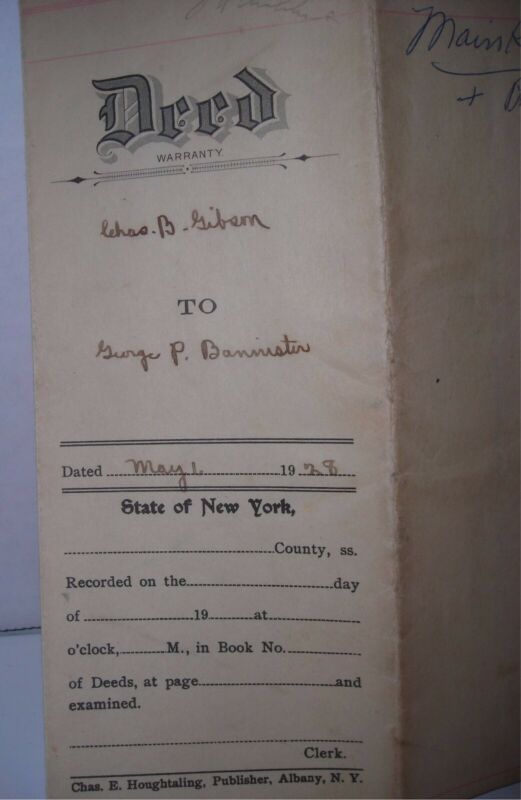 Deed
WARRANTY.
Chas. B. Gibson
TO
George P. Bannister
Dated May 1 1928
State of New York,
County, ss.
Recorded on the day
of 19 at
o'clock, M., in Book No.
of Deeds, at page and
examined.
Clerk.
Chas. E. Houghtaling, Publisher, Albany, N. Y.
Main
+